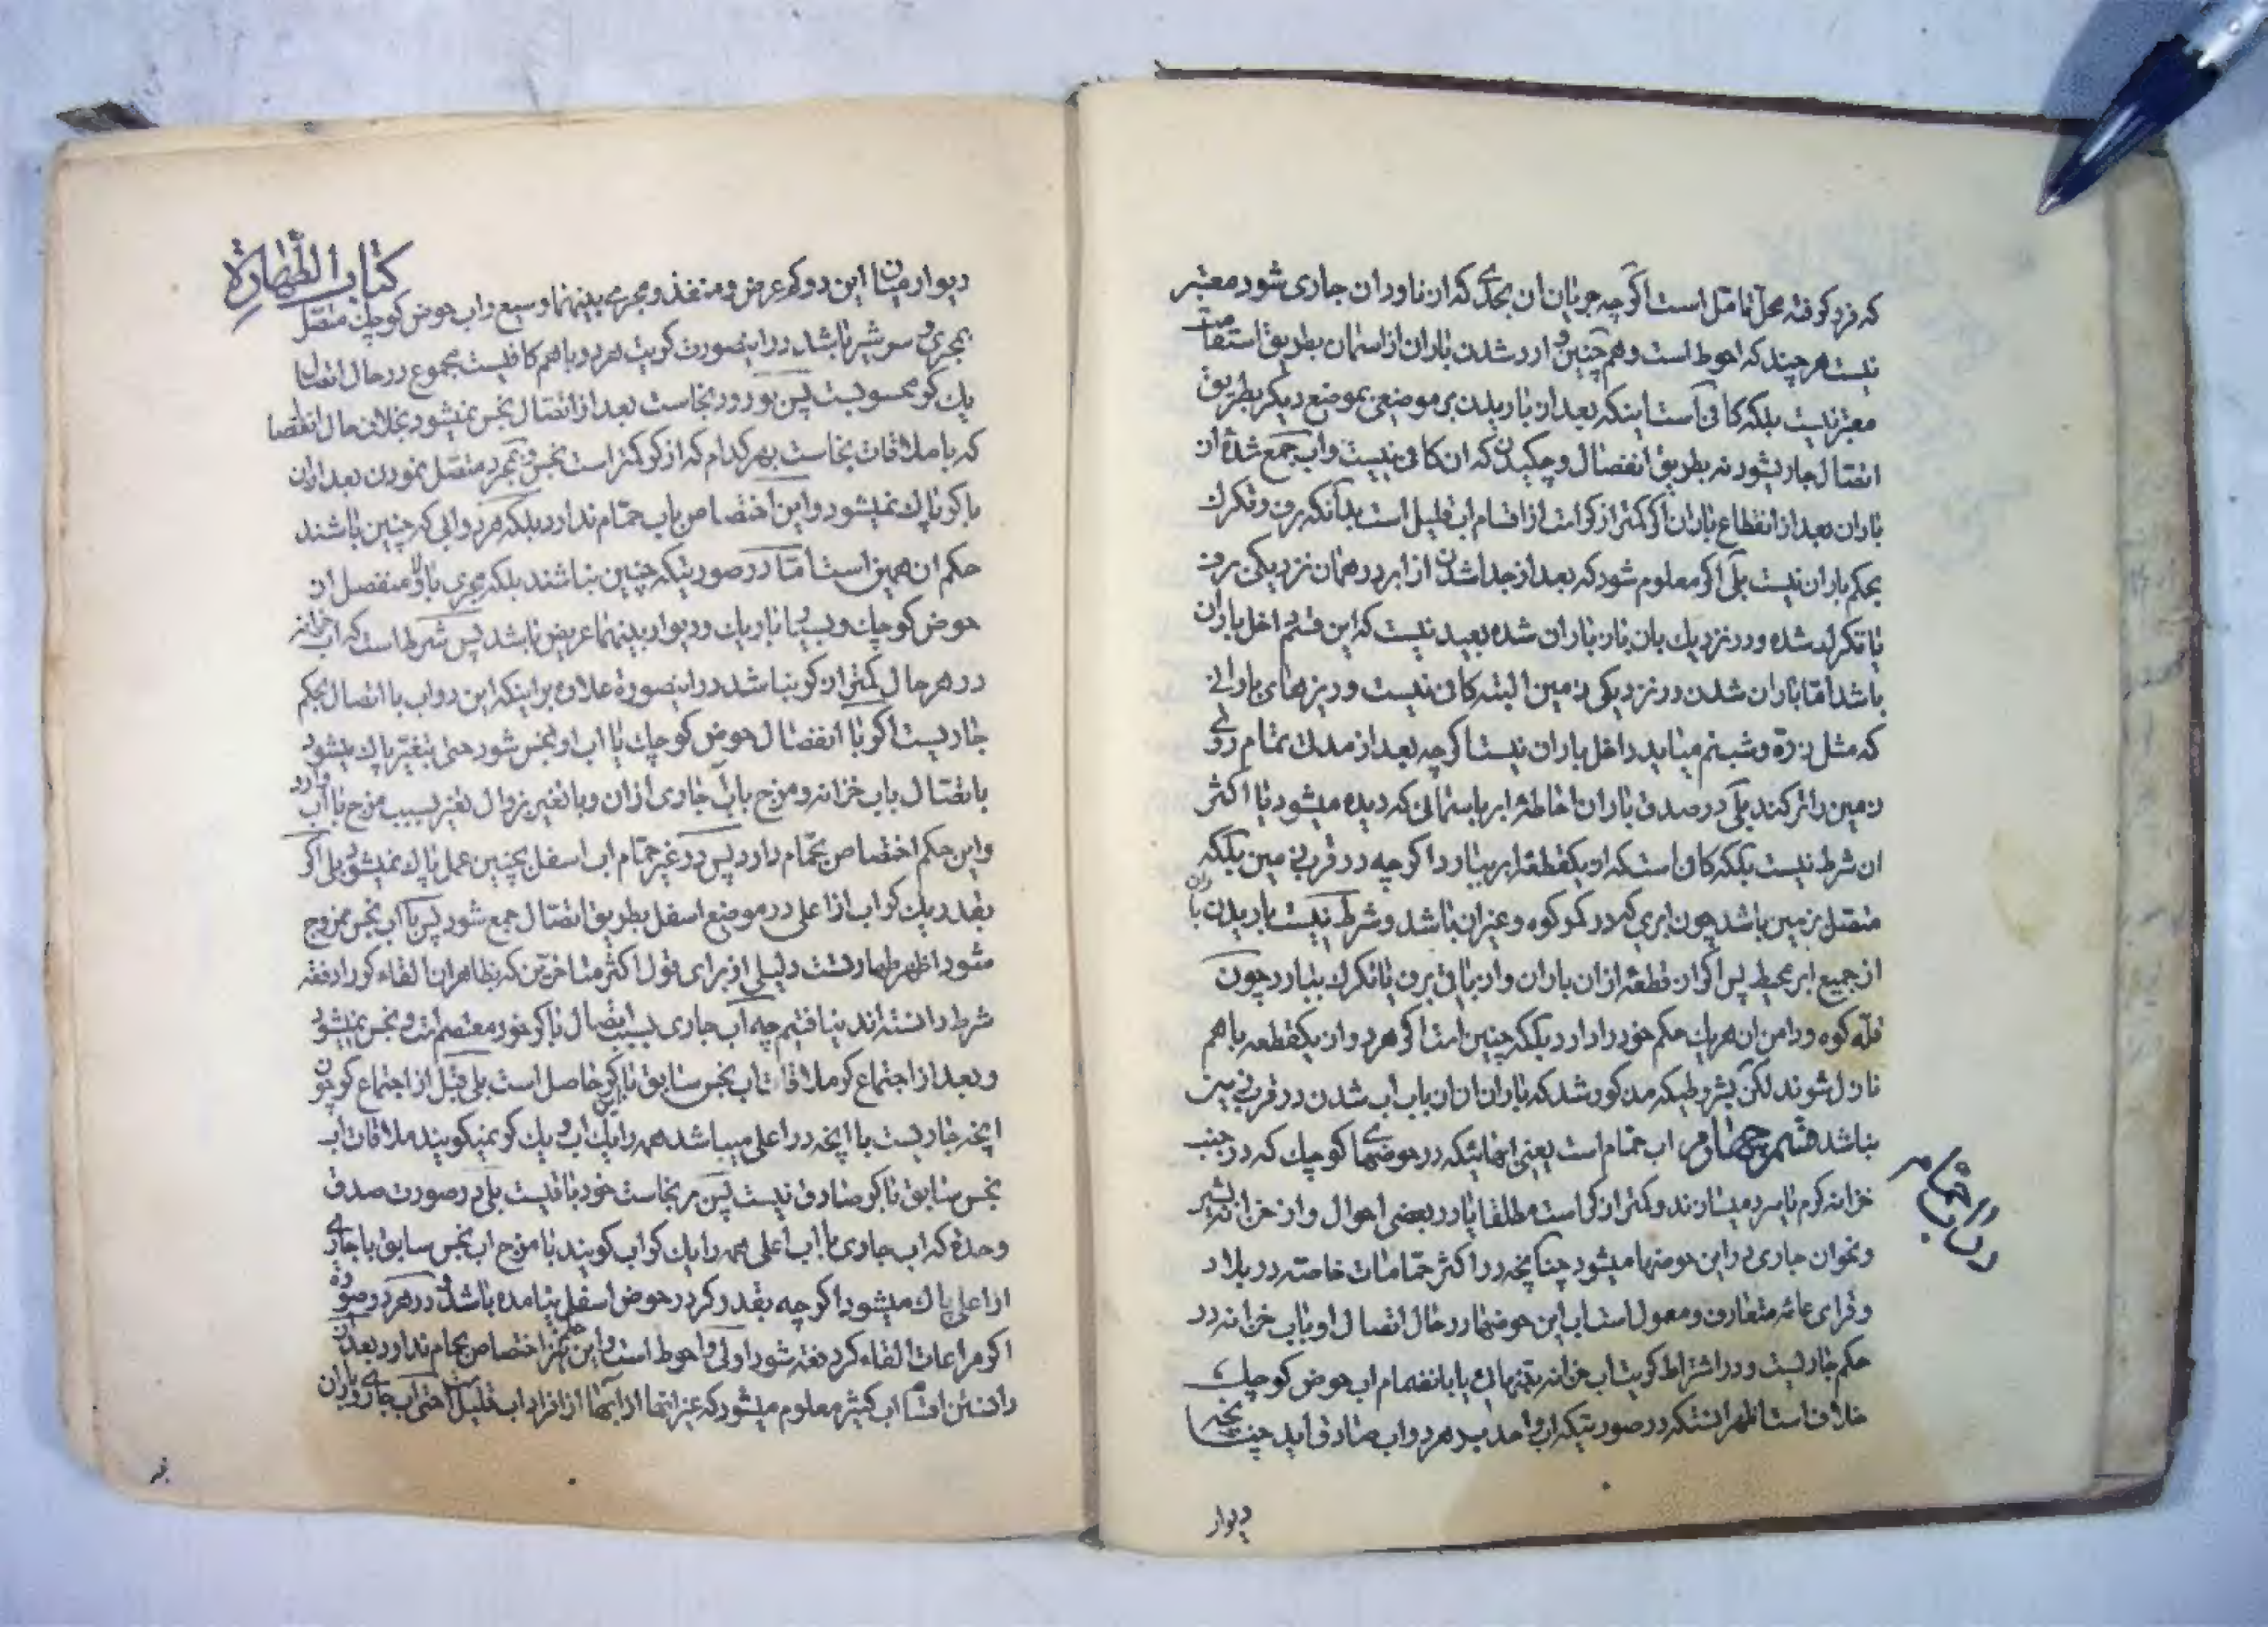 که فرو کوفته محل تامل است اگر چه جریان ان بحدی که از ناودان جاری شود معتبر
نیست هر چند که احوط است و همچنین وارد شدن باران از اسمان بطریق استقامت
معتبر نیست بلکه کافی است اینکه بعد از باریدن بر موضعی بموضع دیگر بطریق
اتصال جاریشود نه بطریق انفصال و چکیدن که ان کافی نیست و اب جمع شدۀ از
باران بعد از انقطاع باران اگر کمتر از کر است از اقسام اب قلیل است بدانکه برف و تکرک
بحکم باران نیست بلی اگر معلوم شود که بعد از جدا شدن از ابر در همان نزدیکی برف
یا تکرک شده و در نزدیک بان باز باران شده بعید نیست که این قسم داخل باران
باشد امّا باران شدن در نزدیکی زمین البته کافی نیست و ریزهای بارانی
که مثل ذرّه و شبنم میاید داخل باران نیست اگر چه بعد از مدت تمام روی
زمین را تر کند بلی در صدق باران احاطۀ ابر باسمانی که دیده میشود یا اکثر
ان شرط نیست بلکه کافی است که از یکقطعۀ ابر ببارد اگر چه در قرب زمین بلکه
متصل بزمین باشد چون ابری که در کمر کوه و غیر ان باشد و شرط نیست باریدن باران
از جمیع ابر محیط پس اگر از قطعۀ از ان باران و از باقی برف یا تکرک ببارد چون
قلّه کوه و دامن ان هر یک حکم خود را دارد بلکه چنین است اگر هر دو از یکقطعه با هم
نازل شوند لکن بشروطیکه مذکور شد که باران از ان باب اب شدن در قرب زمین
نباشد قسم چهارم اب حمّام است یعنی ابهائیکه در حوضهای کوچک که در جنب
در اب حمّام
خزانه کرم یا سرد میسازند و کمتر از کر است مطلقا یا در بعضی احوال و از خزانه بشیر
و نحو ان جاری در این حوضها میشود چنانچه در اکثر حمّامات خاصّه در بلاد
و قرای عامّه متعارف و معمول است اب این حوضها در حال اتصال او باب خزانه در
حکم جاریست و در اشتراط کریت اب خزانه بتنهائی یا بانضمام اب حوض کوچک
خلاف است اظهر انستکه در صورتیکه اب واحد بر هر دو اب صادق اید چنانچه
دیوار
کتاب الطّهارة
دیوار میان این دو کم عرض و منفذ و مجرای بینهما وسیع و اب حوض کوچک متصّل
بمجری و سر شیر باشد در این صورت کریت هر دو با هم کافیست مجموع در حال اتصال
یک کر محسوبست پس بورود نجاست بعد از اتصال نجس نمیشود بخلاف حال انفصال
که با ملاقات نجاست بهر کدام که از کر کمتر است نجس و بمجرد متصّل نمودن بعد از ان
با کر پاک نمیشود و این اختصاص باب حمّام ندارد بلکه هر دو ابی که چنین باشند
حکم ان همین است امّا در صورتیکه چنین نباشند بلکه مجری بالا و منفصل از
حوض کوچک و بسیار باریک و دیوار بینهما عریض باشد پس شرط است که اب خزانه
در هر حال کمتر از کر نباشد در این صورة علاوه بر اینکه این دو اب با اتصال بحکم
جاریست اگر با انفصال حوض کوچک با اب او نجس شود حتی بتغیّر پاک میشود
باتصال باب خزانه و مزج باب جاری از ان و با تغیر بزوال تغیّر بسبب مزج با اب وارد
و این حکم اختصاص بحمّام دارد پس در غیر حمّام اب اسفل بچنین عمل پاک نمیشود بلی اگر
بقدر یک کر اب از اعلی در موضع اسفل بطریق اتصال جمع شود پس با اب نجس ممزوج
شود اظهر طهارتست دلیلی از برای قول اکثر متاخرین که بظاهر ان القاء کر را دفعۀ
شرط دانسته اند نیافتیم چه اب جاری بسبب اتصال با کر خود معتصم است و نجس نمیشود
و بعد از اجتماع کر ملاقات اب نجس سابق با کر حاصل است بلی قبل از اجتماع کر چون
انچه جاریست با انچه در اعلی میباشد همه را یک اب و یک کر نمیکویند ملاقات اب
نجس سابق با کر صادق نیست پس بر نجاست خود باقیست بلی در صورت صدق
وحدة که اب جاری با اب اعلی همه را یک کر اب کویند با مزج اب نجس سابق با جاری
از اعلی پاک میشود اگر چه بقدر کر در حوض اسفل نیامده باشد و در هر دو صورة
اگر مراعات القاء کر دفعۀ شود اولی و احوط است و این حکم نیز اختصاص بحمام ندارد بعد از
دانستن اقسام اب کثیر معلوم میشود که غیر انها از ابها از افراد اب قلیل است حتی اب جاری و باران